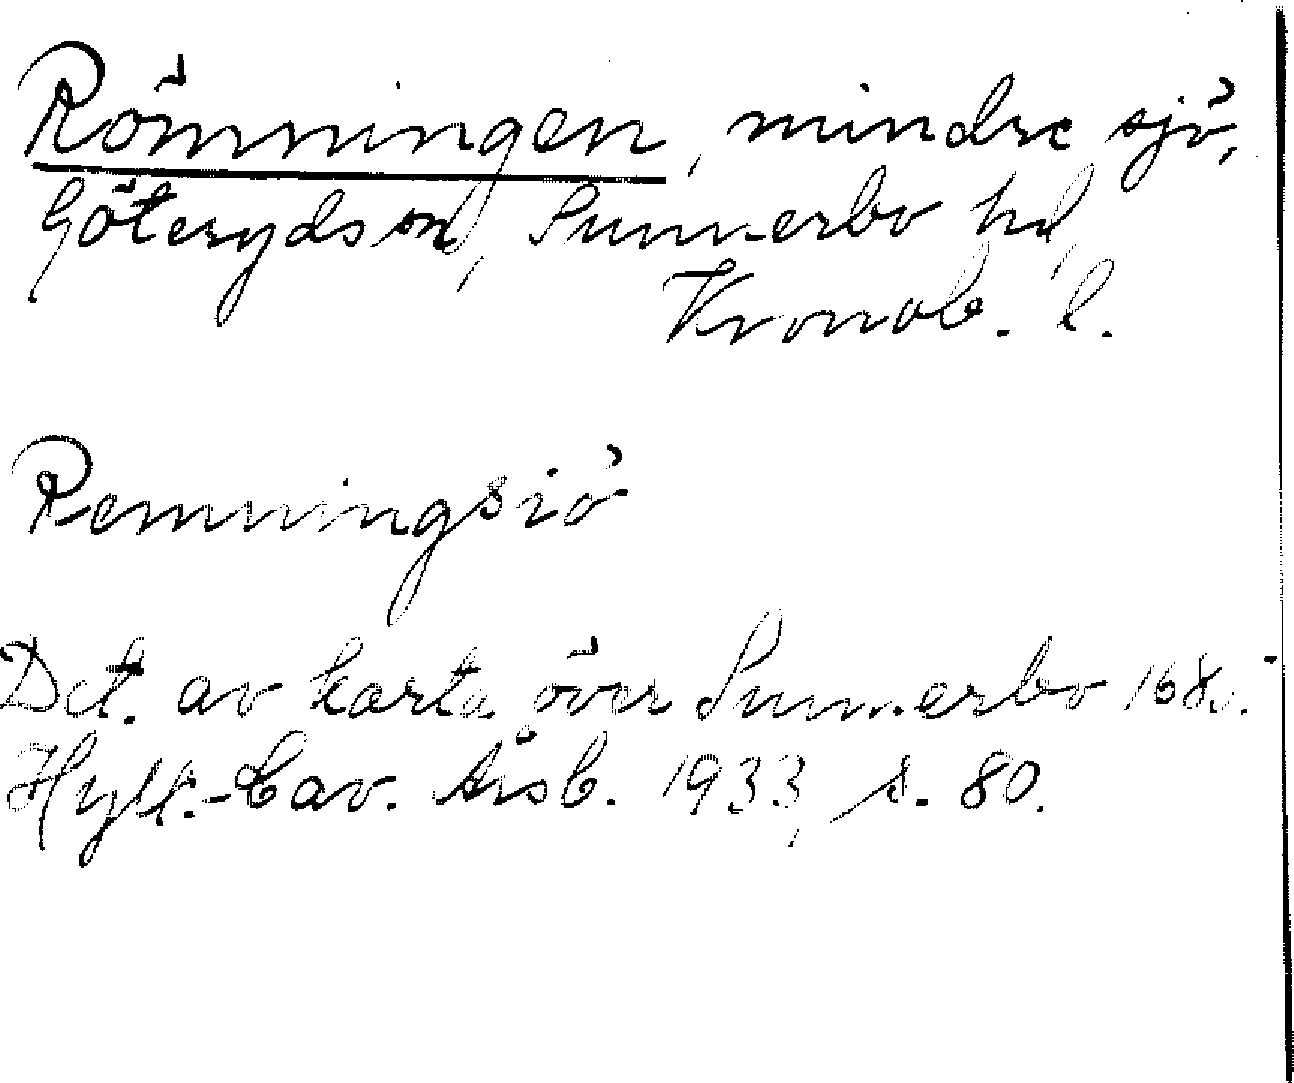 Römningen, mindre sjö,
Göterydssn, Sunnerbo hd,
Kronob. l.
Remningsiö
Det. av karta över Sunnerbo
Hylt.-Cav. Årsb. 1933, s. 80.